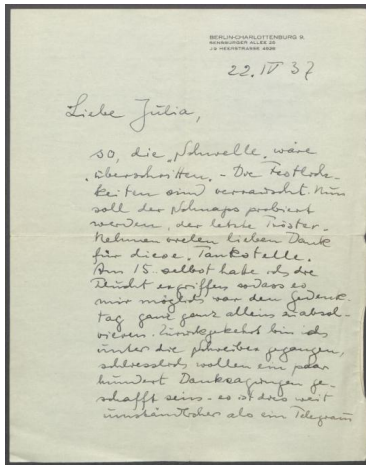 BERLIN-CHARLOTTENBURG 9,
SENSBURGER ALLEE 26
J9 HEERSTRASSE 4039
22. IV 37
Liebe Julia,
so, die „Schwelle“ wäre
überschritten. – Die Festlich-
keiten sind verrauscht. Nun
soll der Schnaps probiert
werden, der letzte Tröster.
Nehmen vielen lieben Dank
für diese „Tankstelle.
Am 15. selbst habe ich die
Flucht ergriffen sodass es
mir möglich war den Gedenk-
tag ganz ganz allein zu absol-
vieren. Zurückgekehrt bin ich
unter die Schreiber gegangen,
schliesslich wollen ein paar
hundert Danksagungen ge-
schafft sein – es ist dies weit
umständlicher als ein Telegram